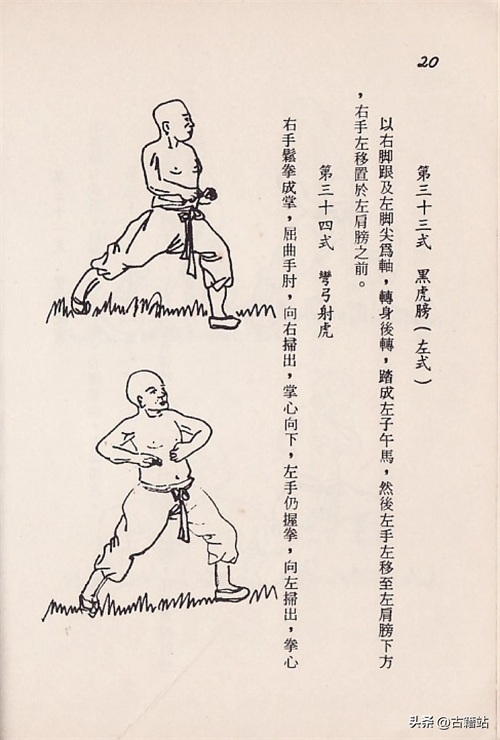 20
第三十三式　黑虎膀（左式）
以右脚跟及左脚尖爲軸，轉身後轉，踏成左子午馬，然後左手左移至左肩膀下方
，右手左移置於左肩膀之前。
第三十四式　彎弓射虎
右手鬆拳成掌，屈曲手肘，向右掃出，掌心向下，左手仍握拳，向左掃出，拳心
头条 @古籍站